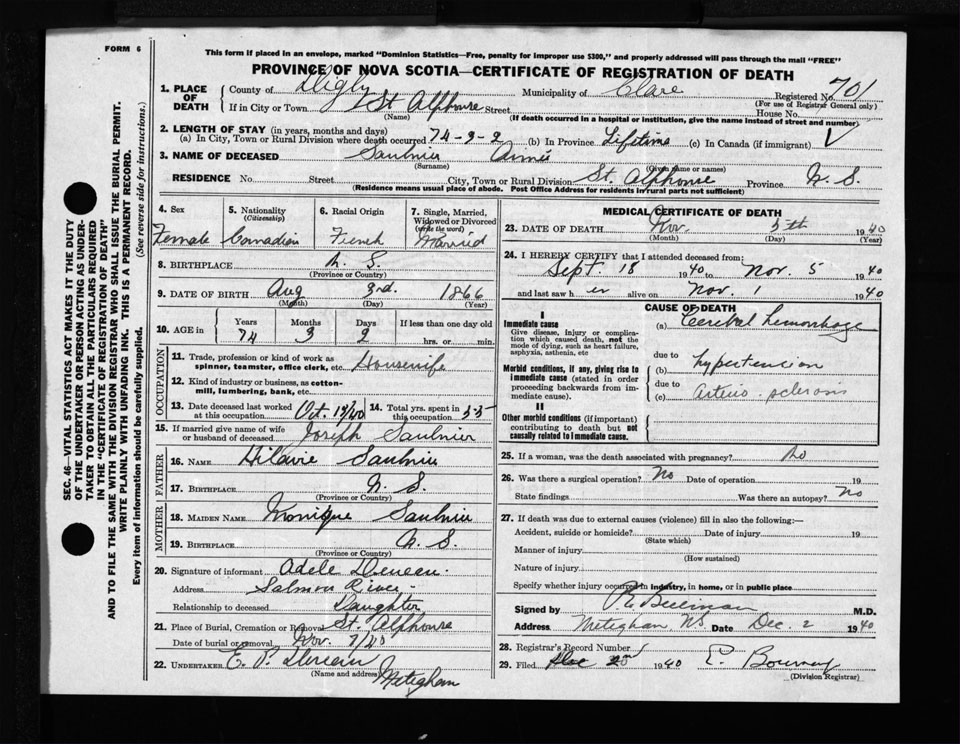 FORM 6
This form if placed in an envelope, marked "Dominion Statistics—Free, penalty for improper use $300," and properly addressed will pass through the mail "FREE"
PROVINCE OF NOVA SCOTIA—CERTIFICATE OF REGISTRATION OF DEATH
SEC. 46—VITAL STATISTICS ACT MAKES IT THE DUTY
OF THE UNDERTAKER OR PERSON ACTING AS UNDER-
TAKER TO OBTAIN ALL THE PARTICULARS REQUIRED
IN THE "CERTIFICATE OF REGISTRATION OF DEATH"
AND TO FILE THE SAME WITH THE DIVISION REGISTRAR WHO SHALL ISSUE THE BURIAL PERMIT.
WRITE PLAINLY WITH UNFADING INK. THIS IS A PERMANENT RECORD.
Every item of information should be carefully supplied. (See reverse side for instructions.)
1. PLACE OF DEATH County of Digby Municipality of Clare Registered No. 701
(For use of Registrar General only)
If in City or Town St. Alphonse Street House No.
(Name) (If death occurred in a hospital or institution, give the name instead of street and number)
2. LENGTH OF STAY (in years, months and days)
(a) In City, Town or Rural Division where death occurred 74-3-2 (b) In Province Lifetime (c) In Canada (if immigrant)
3. NAME OF DECEASED Saulnier
(Surname) (Given name or names)
RESIDENCE No. Street City, Town or Rural Division St. Alphonse Province N. S.
(Residence means usual place of abode. Post Office Address for residents in rural parts not sufficient)
4. Sex 5. Nationality (Citizenship) 6. Racial Origin 7. Single, Married, Widowed or Divorced (write the word)
Female Canadian French Married
8. BIRTHPLACE N. S.
(Province or Country)
9. DATE OF BIRTH Aug 3rd. 1866
(Month) (Day) (Year)
10. AGE in Years Months Days If less than one day old
74 3 2 hrs. or min.
OCCUPATION
11. Trade, profession or kind of work as
spinner, teamster, office clerk, etc. Housewife
12. Kind of industry or business, as cotton-
mill, lumbering, bank, etc.
13. Date deceased last worked at this occupation Oct. 14. Total yrs. spent in this occupation 55
15. If married give name of wife
or husband of deceased Joseph Saulnier
FATHER
16. NAME Hilaire Saulnier
17. BIRTHPLACE N. S.
(Province or Country)
MOTHER
18. MAIDEN NAME Monique Saulnier
19. BIRTHPLACE N. S.
(Province or Country)
20. Signature of informant Adele
Address Salmon River
Relationship to deceased Daughter
21. Place of Burial, Cremation or Removal St. Alphonse
Date of burial or removal Nov. 7/40
22. UNDERTAKER E. P.
(Name and address) Meteghan
MEDICAL CERTIFICATE OF DEATH
23. DATE OF DEATH Nov. 5th 1940
(Month) (Day) (Year)
24. I HEREBY CERTIFY that I attended deceased from:
Sept. 18 1940 to Nov. 5 1940
and last saw h er alive on Nov. 1 1940
CAUSE OF DEATH
I
Immediate cause
Give disease, injury or complication which caused death, not the mode of dying, such as heart failure, asphyxia, asthenia, etc
(a) Cerebral hemorrhage
due to
Morbid conditions, if any, giving rise to immediate cause (stated in order proceeding backwards from immediate cause).
(b) hypertension
due to
(c) arterio-sclerosis
II
Other morbid conditions (if important) contributing to death but not causally related to immediate cause.
25. If a woman, was the death associated with pregnancy? No
26. Was there a surgical operation? No Date of operation 19
State findings Was there an autopsy? No
27. If death was due to external causes (violence) fill in also the following:—
Accident, suicide or homicide? Date of injury 19
(State which)
Manner of injury
(How sustained)
Nature of injury
Specify whether injury occurred in industry, in home, or in public place
Signed by M.D.
Address Meteghan, NS Date Dec. 2 1940
28. Registrar's Record Number
29. Filed 1940
(Division Registrar)